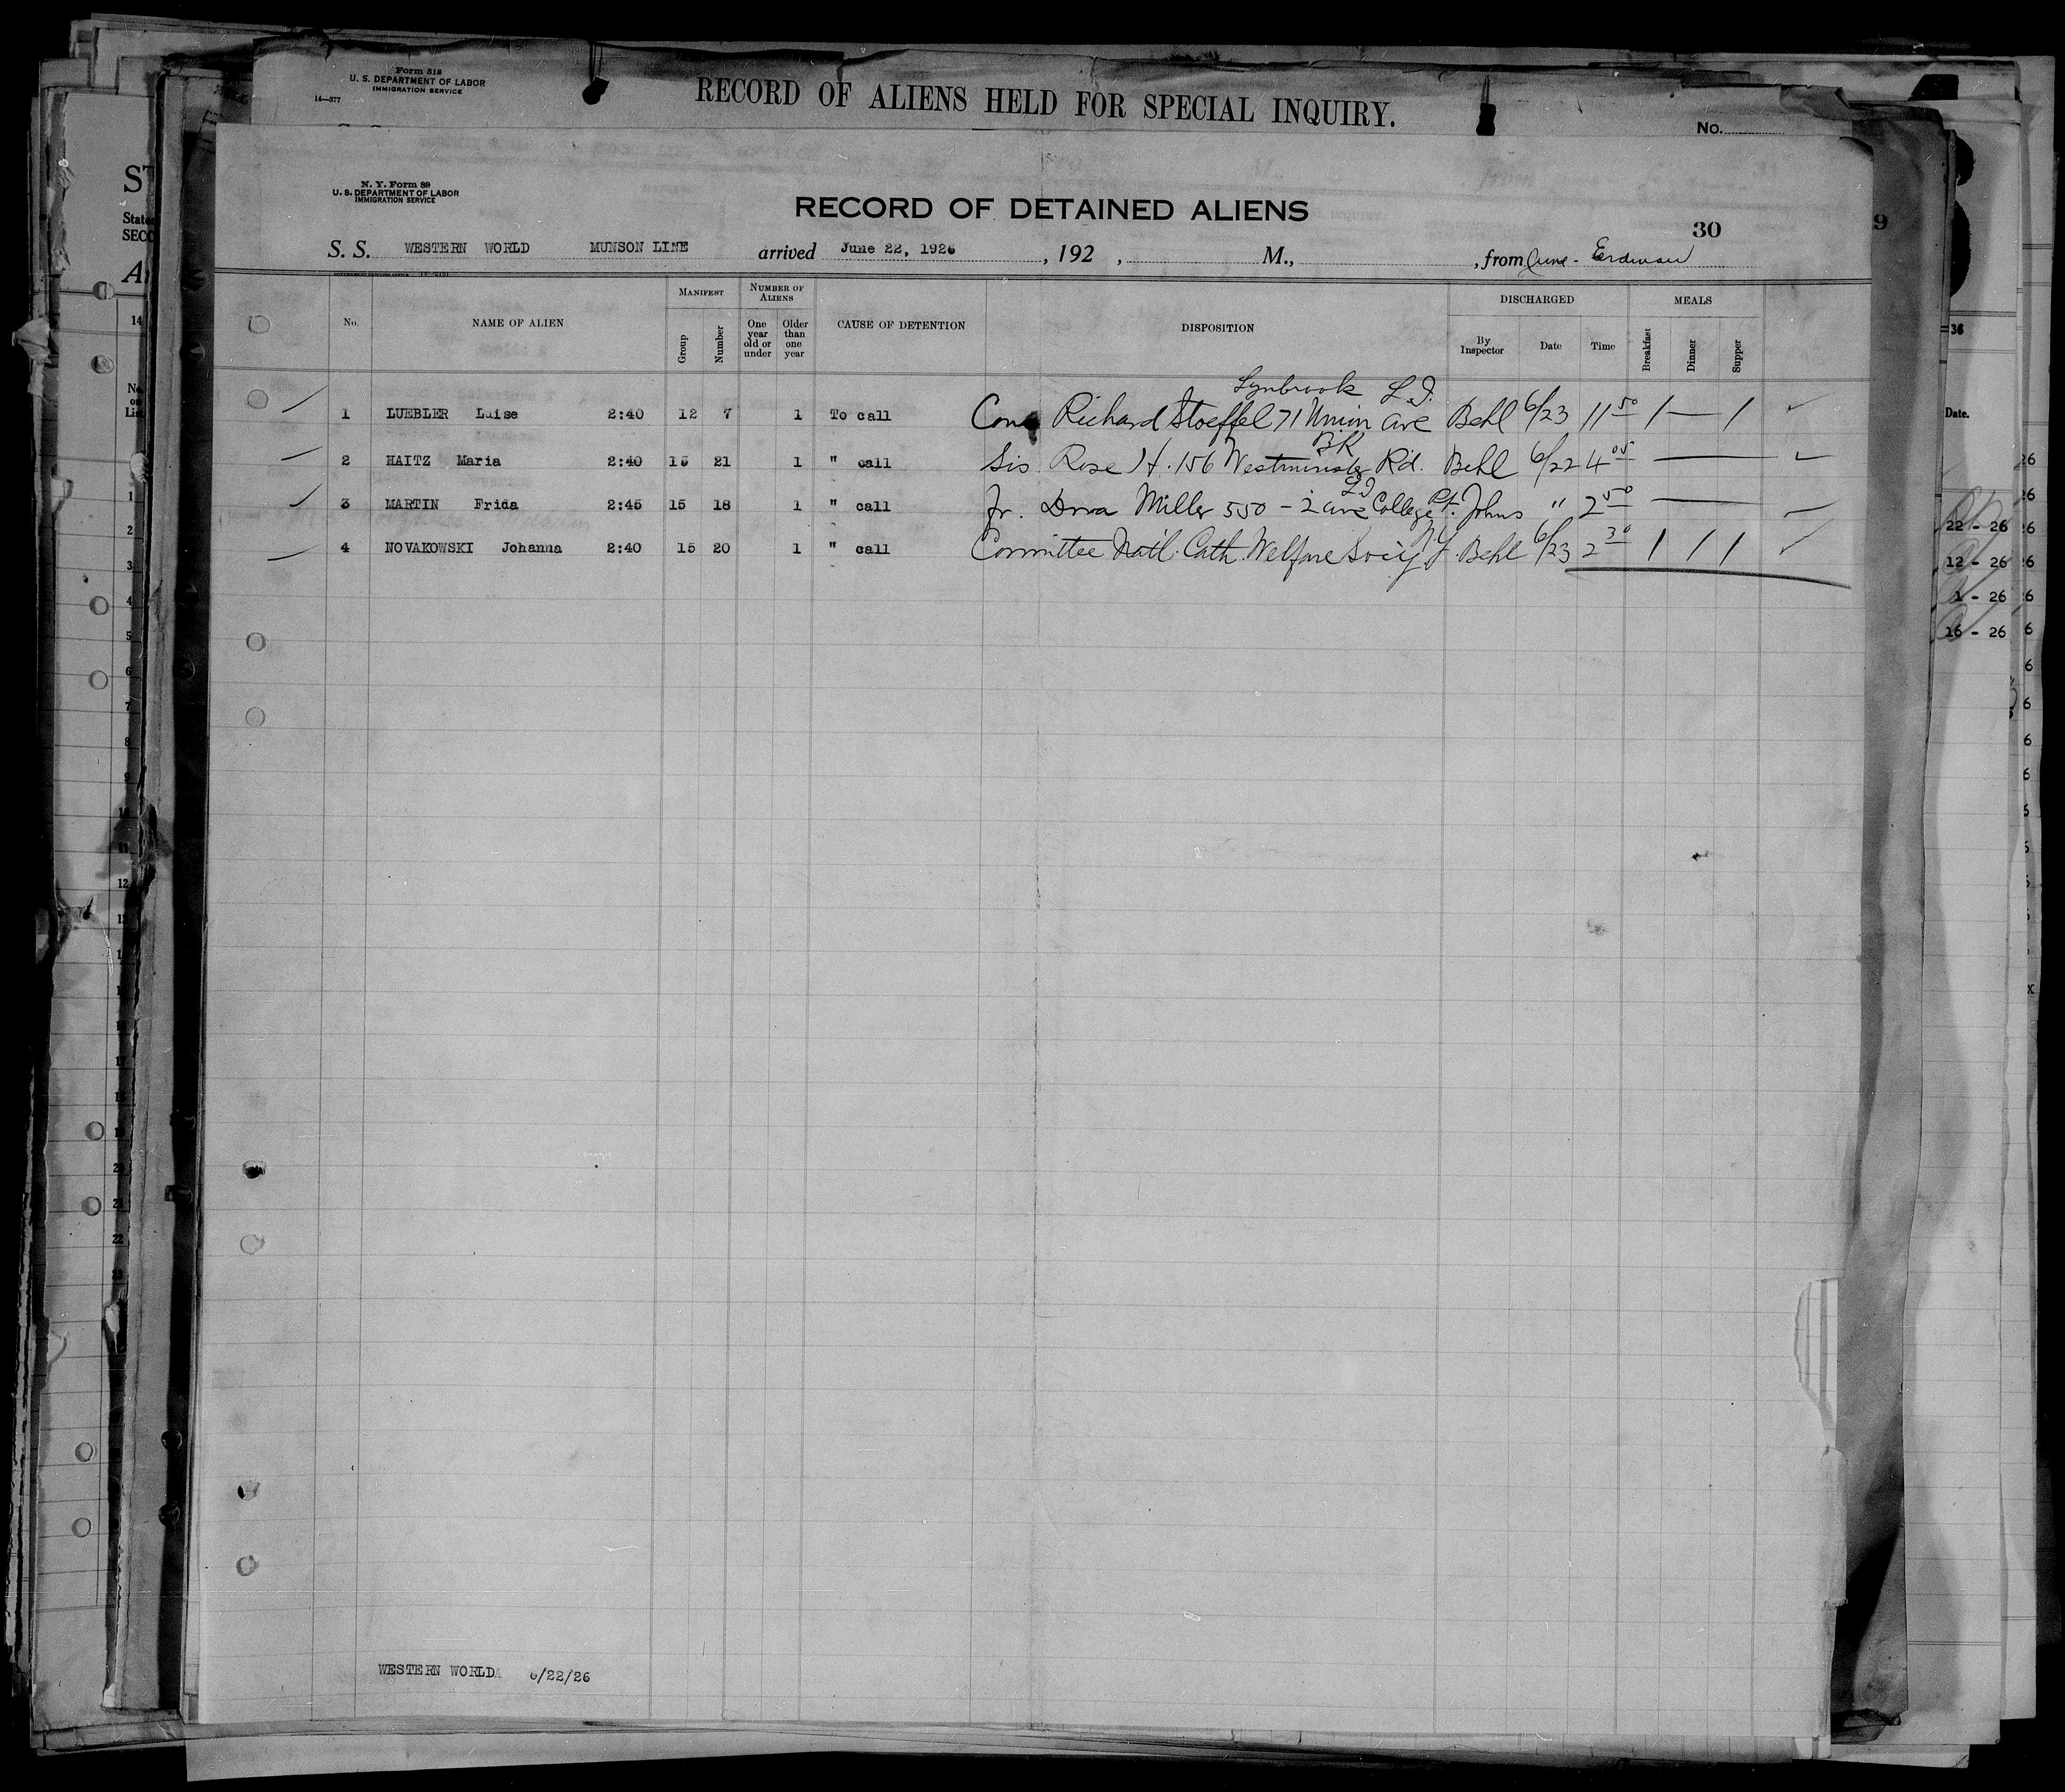 Form 518
U. S. DEPARTMENT OF LABOR
IMMIGRATION SERVICE
14—377
RECORD OF ALIENS HELD FOR SPECIAL INQUIRY.
No.
N. Y. Form 89
U. S. DEPARTMENT OF LABOR
IMMIGRATION SERVICE
RECORD OF DETAINED ALIENS
30
9
S. S. WESTERN WORLD MUNSON LINE arrived June 22, 1926, 192 , M., , from Erdman
No. NAME OF ALIEN MANIFEST Group Number NUMBER OF ALIENS One year old or under Older than one year CAUSE OF DETENTION DISPOSITION DISCHARGED By Inspector Date Time MEALS Breakfast Dinner Supper
Lynbrook L.I.
1 LUEBLER Luise 2:40 12 7 1 To call Richard Stoeffel 71 Union ave Behl 6/23 11 50 / — /
BK
2 HAITZ Maria 2:40 15 21 1 " call Sis. Rose H. 156 Westminster Rd. Behl 6/22 4 05 —
L I
3 MARTIN Frida 2:45 15 18 1 " call Fr. Dora Miller 550 - 2 ave College Pt. Johns " 2 50 —
N.Y.
4 NOVAKOWSKI Johanna 2:40 15 20 1 " call Committee Natl. Cath. Welfare Behl 6/23 2 30 / / /
WESTERN WORLD 6/22/26
ST
State
SECO
14
No. on List
1
2
3
4
5
6
7
8
9
10
11
12
36
Date.
22 - 26
12 - 26
1 - 26
16 - 26